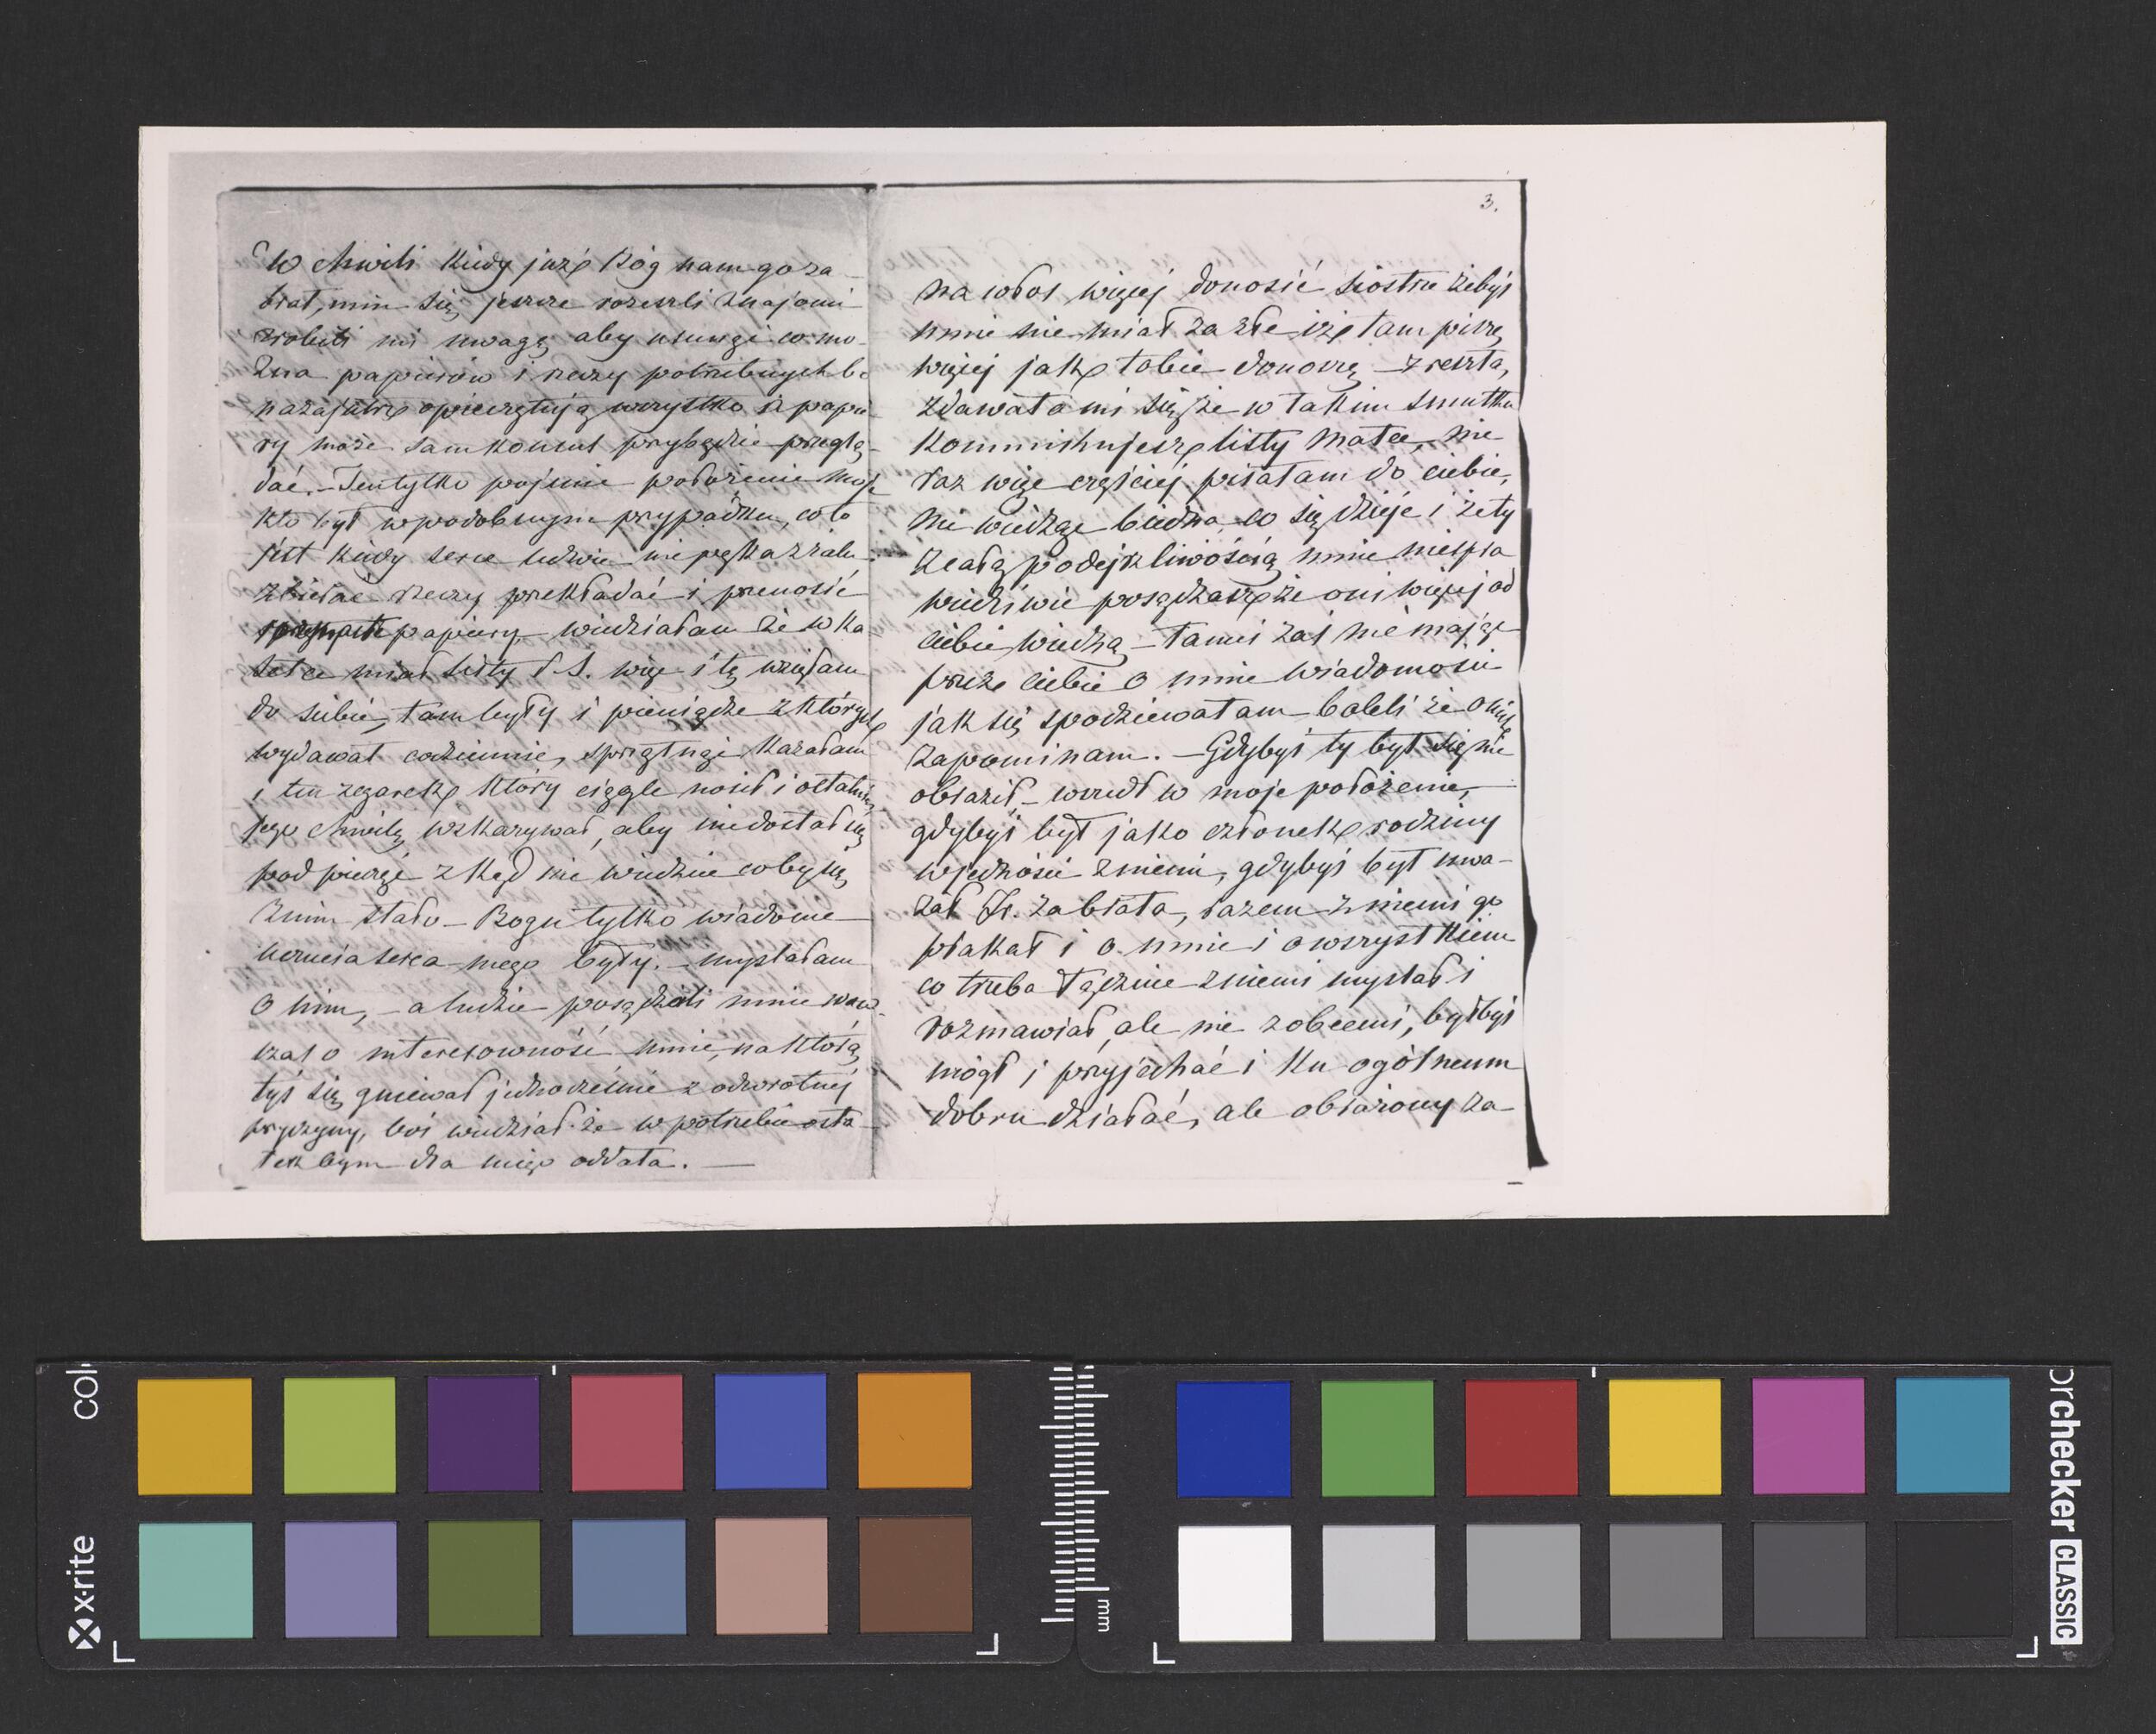 W chwili kiedy już Bóg nam go za-
brał, nim się jeszcze rozeszli znajomi
zrobili mi uwagę aby usunąć co mo-
żna papierów i rzeczy potrzebnych bo
nazajutrz opieczętują wszystko a papie
ry może sam konsul przybędzie przeglą-
dać. – Ten tylko pojmie położenie moje
kto był w podobnym przypadku, co to
jest kiedy serce ledwie nie pęka z żalu
zbierać rzeczy przekładać i przenosić
papiery – widziałam że w ka
setce miał listy d S. więc i tę wzięłam
do siebie, tam były i pieniądze z których
wydawał codziennie, sprzątnąć kazałam
i ten zegarek który ciągle nosił i ostatnią
jego chwilę wskazywał, aby niedostał się
pod pieczęć z kąd nie wiedzieć coby się
z nim stało – Bogu tylko wiadome
uczucia serca mego były. – myślałam
o nim, – a ludzie posądzali mnie wów-
czas o interesowność mnie, na którą
tyś się gniewał jednocześnie z odwrotnej
przyczyny, boś wiedział że w potrzebie osta
tek bym dla niego oddała. —
3.
na włos więcej donosić siostrze żebyś
mnie nie miał za złe iż tam piszę
więcej jak tobie donoszę – zresztą,
zdawało mi się że w takim smutku
kommunikujesz listy Matce, nie
raz więc częściej pisałam do ciebie,
nie wiedząc biedna co się dzieje i że ty
z całą podejrzliwością mnie niespra
wiedliwie posądzasz że oni więcej od
ciebie wiedzą – tamci zaś nie mając
przez ciebie o mnie wiadomości
jak się spodziewałam boleli że o nich
zapominam. – Gdybyś ty był się nie
obraził – wszedł w moje położenie,
gdybyś był jako członek rodziny
w jedności z niemi, gdybyś był uwa-
żał Fr. za brata, razem z niemi go
płakał i o mnie i o wszystkiem
co trzeba łącznie z niemi myślał i
rozmawiał, ale nie z obcemi, byłbyś
mógł i przyjechać i ku ogólnemu
dobru działać, ale obrażony za-
x-rite
colorchecker CLASSIC
mm